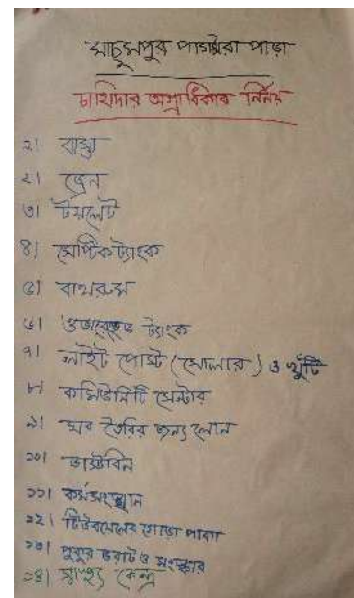 মাছুমপুর পাড়া
চাহিদার অগ্রাধিকার নির্নয়
১। রাস্তা
২। ড্রেন
৩। টয়লেট
৪। সেপ্টিক ট্যাংক
৫। বাথরুম
৬। ট্যাংক
৭। লাইট পোস্ট (সোলার) ও খুঁটি
৮। কমিউনিটি সেন্টার
৯। ঘর তৈরির জন্য লোন
১০। ডাস্টবিন
১১। কর্মসংস্থান
১২। টিউবয়েলের গোড়া পাকা
১৩। পুকুর ভরাট ও সংস্কার
১৪। স্বাস্থ্য কেন্দ্র